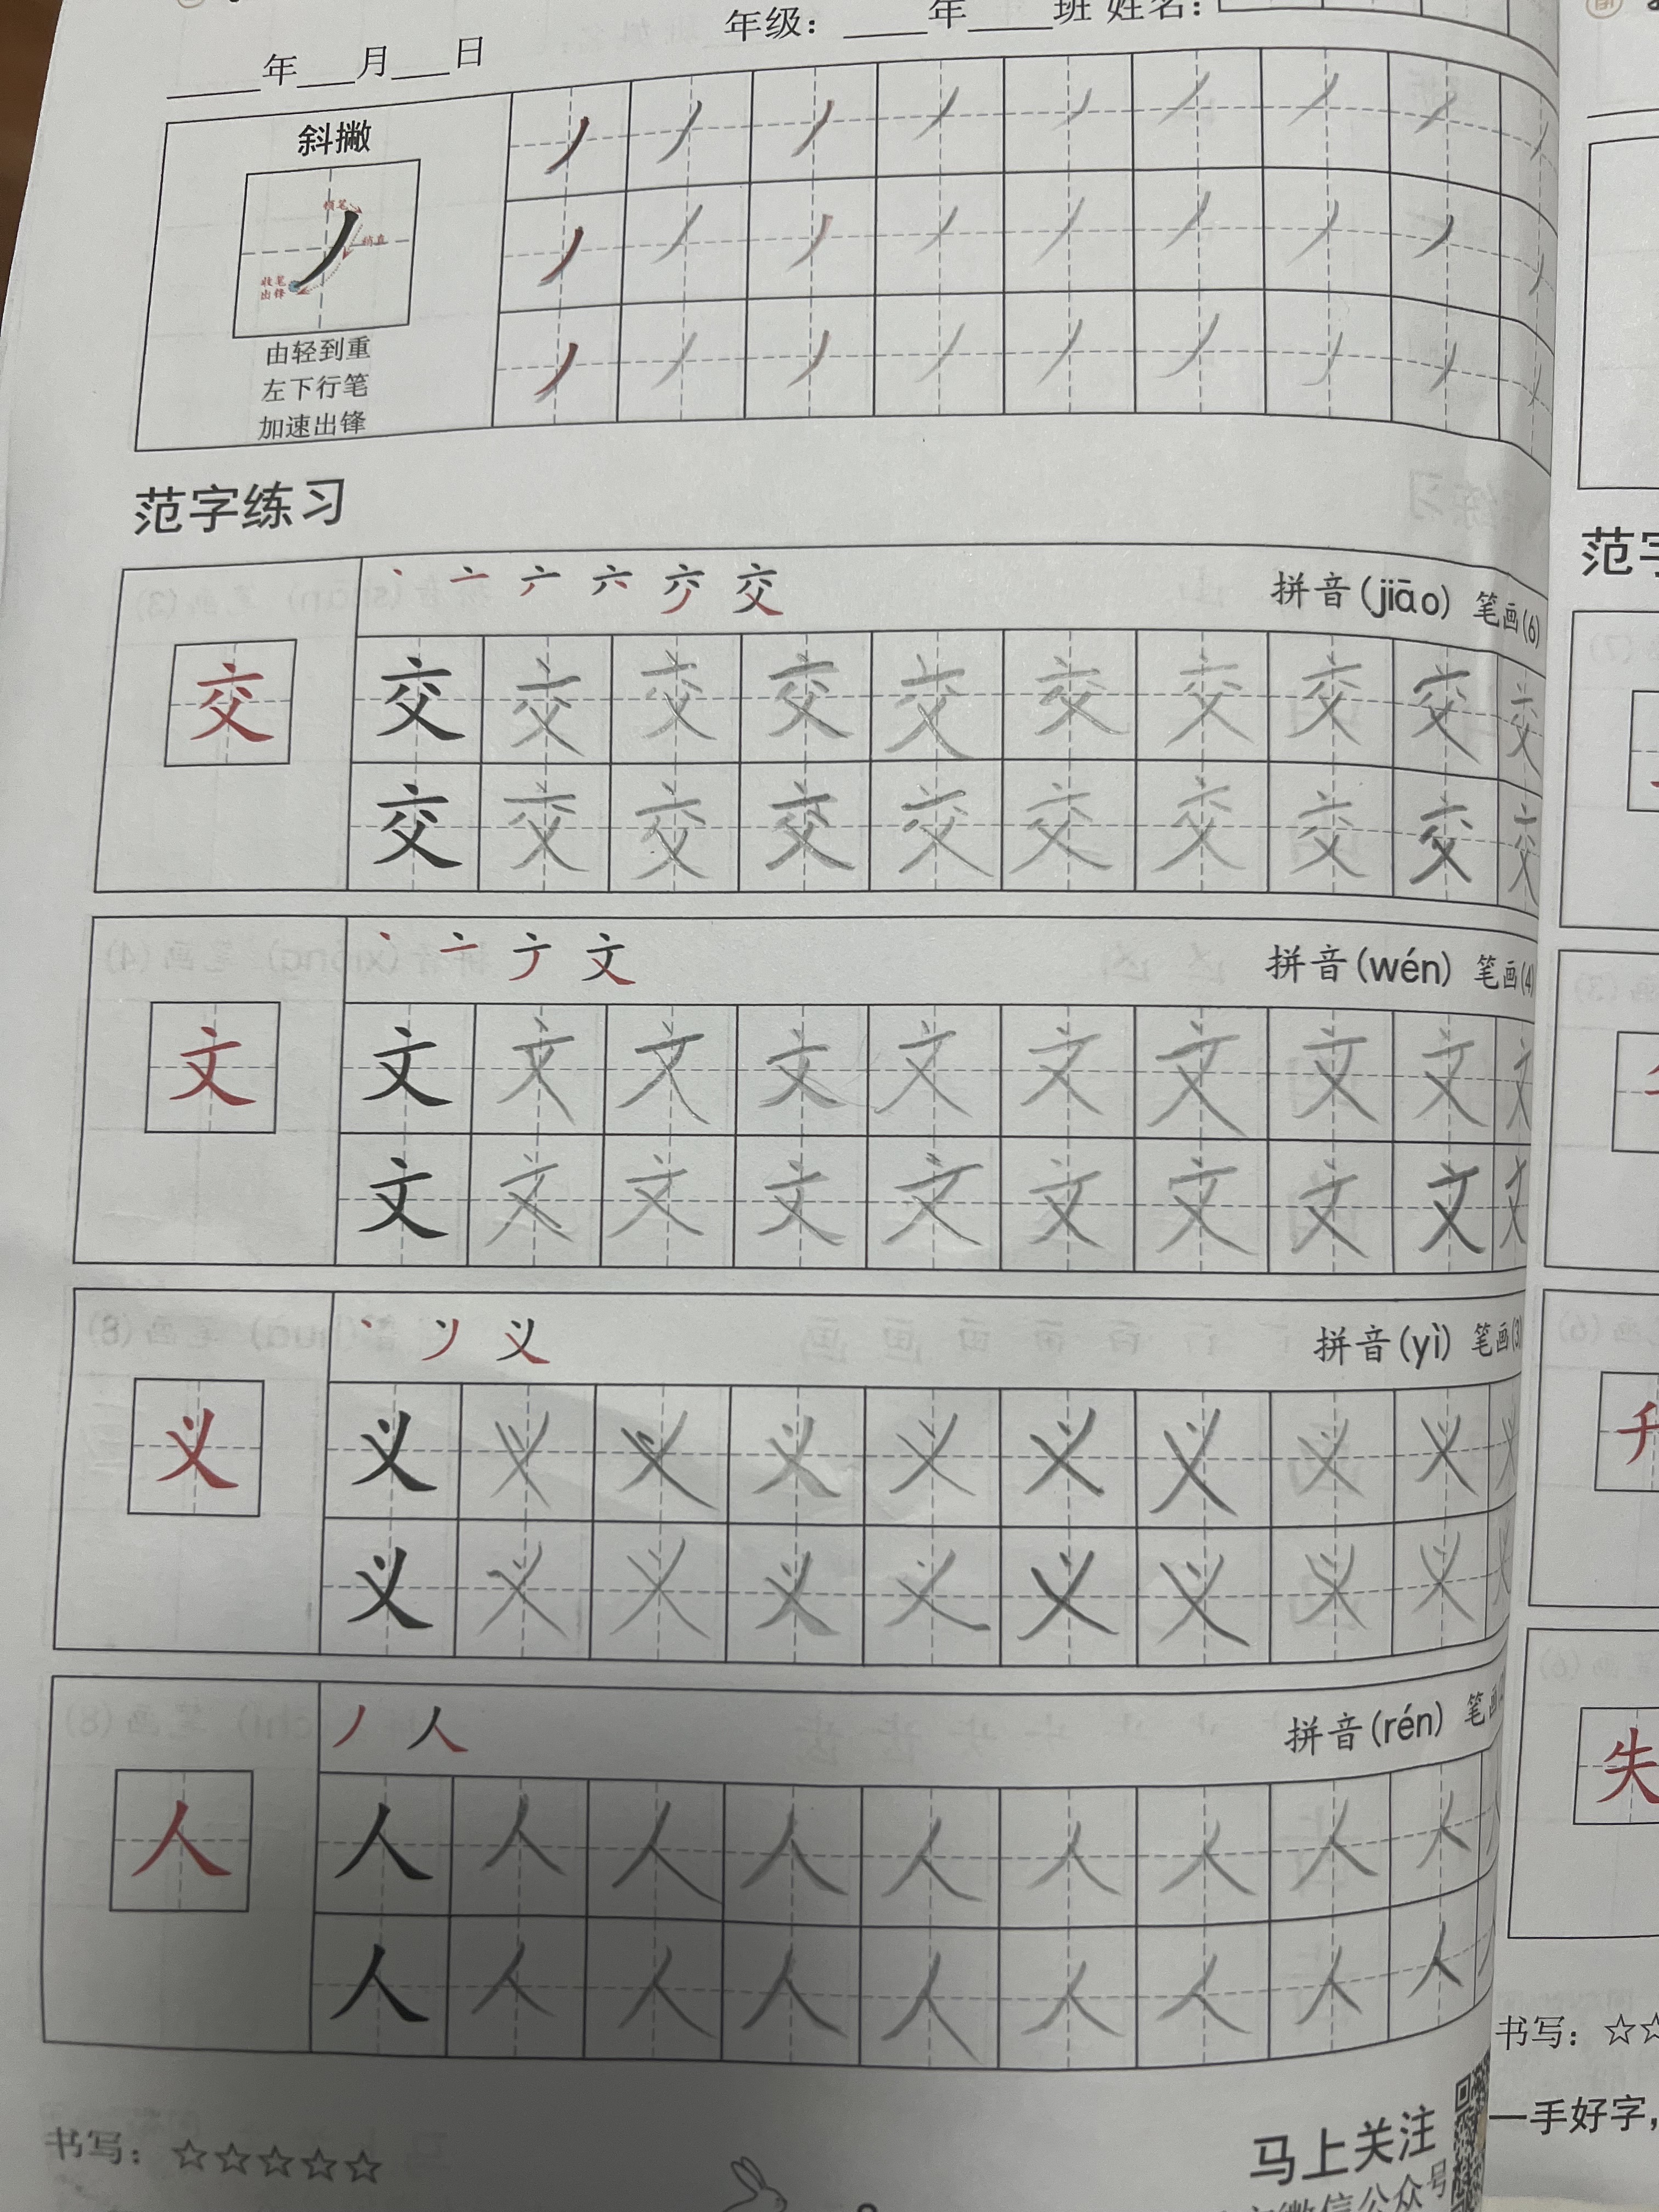 年级：____年____班 姓名：
____年___月___日
斜撇
稍直
收笔
出锋
由轻到重
左下行笔
加速出锋
范字练习
拼音(jiāo) 笔画(6)
交 交 交 交 交 交 交 交 交 交 交
交 交 交 交 交 交 交 交 交 交
拼音(wén) 笔画(4)
文 文 文 文 文 文 文 文 文 文 文
文 文 文 文 文 文 文 文 文 文
拼音(yì) 笔画(3)
义 义 义 义 义 义 义 义 义 义 义
义 义 义 义 义 义 义 义 义 义
拼音(rén) 笔画
人 人 人 人 人 人 人 人 人 人
人 人 人 人 人 人 人 人 人
书写：☆☆☆☆☆
马上关注
微信公众号
范
失
书写：☆☆
一手好字，